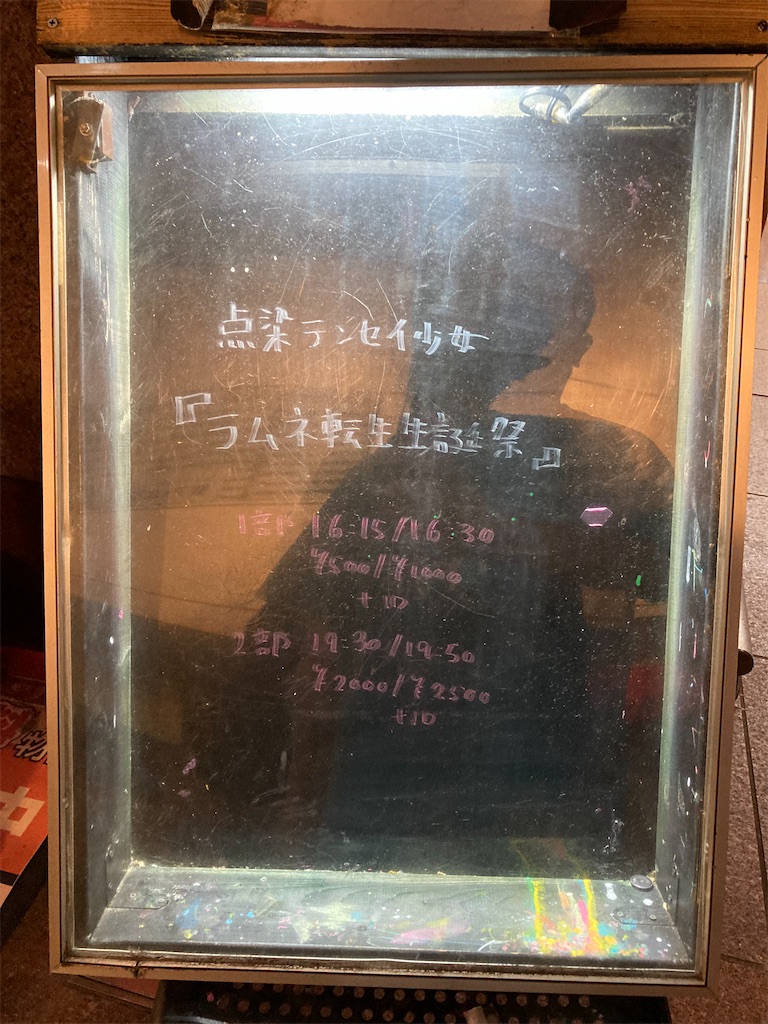 点染テンセイ少女
『ラムネ転生生誕祭』
1部 16:15/16:30
¥500/¥1000
+1D
2部 19:30/19:50
¥2000/¥2500
+1D
中